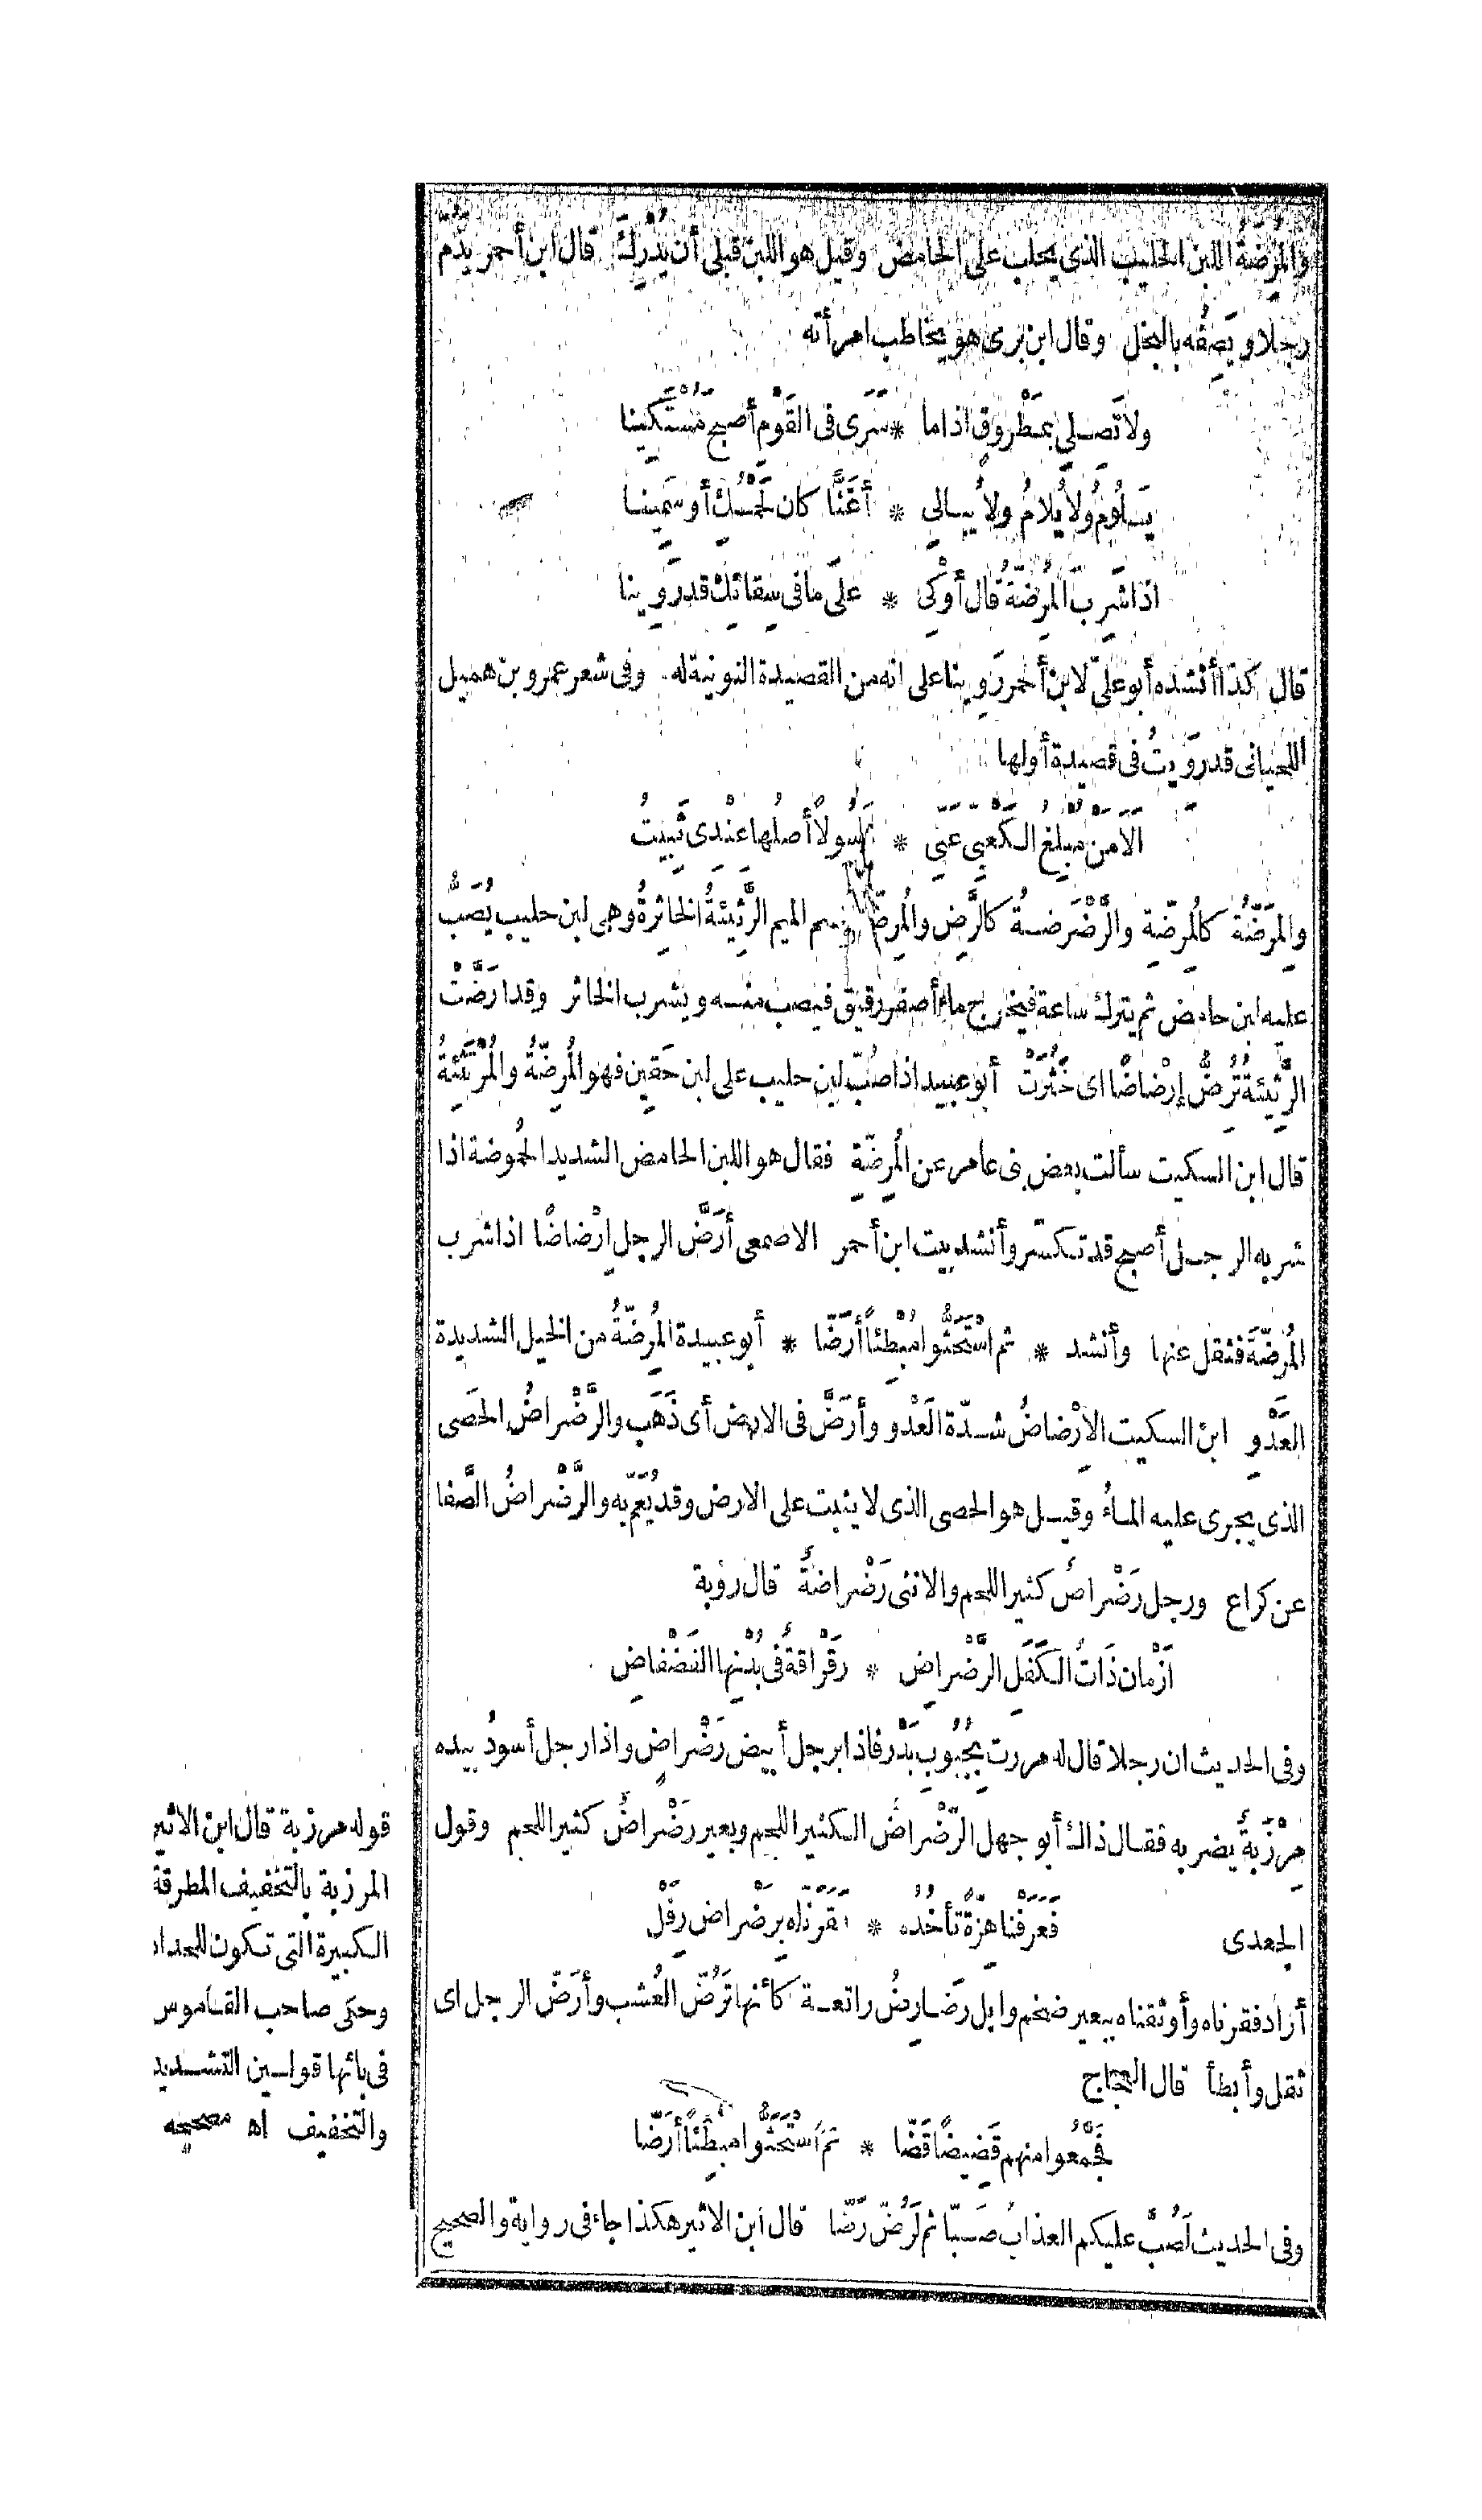 والمُرِضَّةُ اللبن الحليب الذى يحلب على الحامض وقيل هو اللبن قبل أن يُدْرِكَ قال ابن أحمر يَذُمّ
رجلا ويَصِفُه بالبخل وقال ابن برى هو يخاطب امرأته
ولا تَصِلِي بمَطْروقٍ اذا ما * سَرَى فى القَوْم أصبح مُسْتَكِينا
يَلُومُ ولا يُلامُ ولا يُبالِى * أغَثًّا كان لَحْمُكِ أو سَمِينا
اذا شَرِبَ المُرِضَّةَ قال أَوْكِى * على ما فى سِقائِكِ قد رَوِينا
قال كذا أنشده أبو علىّ لابن أحمر رَوِينا على انه من القصيدة النونية له وفى شعر عمرو بن هميل
اللحيانى قد رَوِيتُ فى قصيدة أولها
أَلا مَن مُبْلِغُ الكَعْبِىِّ عَنِّى * رَسُولاً أصلُها عِنْدِى ثَبِيتُ
والمِرَضَّةُ كالمُرِضّة والرَّضْرَضةُ كالرَّضِ والمُرِضَّةُ بضم الميم الرَّثِيئَةُ الخاثِرةُ وهى لبن حليب يُصَبُّ
عليه لبن حامض ثم يترك ساعة فيخرج ماء أصفر رقيق فيصب منه ويشرب الخاثر وقد ارَضَّتْ
الرَّثِيئةُ تُرِضُّ إرْضاضًا اى خَثُرَتْ أبو عبيد اذا صُبَّ لبن حليب على لبن حَقِين فهو المُرِضّةُ والمُرْتَثِئةُ
قال ابن السكيت سألت بعض بنى عامر عن المُرِضّةِ فقال هو اللبن الحامض الشديد الحُموضة اذا
شربه الرجل أصبح قد تكسّر وأنشد بيت ابن أحمر الاصمعى أَرَضَّ الرجل إرْضاضًا اذا شرب
المُرِضّةَ فثقل عنها وأنشد * ثم اسْتَحَثُّوا مُبْطِئًا أَرَضّا * أبو عبيدة المُرِضّةُ من الخيل الشديدة
العَدْوِ ابن السكيت الارْضاضُ شدّة العَدْو وأَرَضَّ فى الارض أى ذَهَب والرَّضْراضُ الحَصَى
الذى يجرى عليه الماءُ وقيل هو الحصى الذى لا يثبت على الارض وقد يُعَمّ به والرَّضْراضُ الصَّفا
عن كراع ورجل رَضْراضٌ كثير اللحم والانثى رَضْراضةٌ قال رؤبة
أَزْمان ذَاتُ الكَفَلِ الرَّضْراضِ * رَقْراقةٌ فى بُدْنِها الفَضْفاضِ
وفى الحديث ان رجلا قال له مررت بِجُبُوبِ بَدْر فاذا برجل أبيض رَضْراضٍ واذا رجل أسودُ بيده
مِرْزَبةٌ يضربه فقال ذاك أبو جهل الرّضْراضُ الكثير اللحم وبعير رَضْراضٌ كثير اللحم وقول
الجعدى فَعَرَفْنا هِزّةً تَأْخُذُه * فقَرَنّاه بِرَضْراضٍ رِفَلّ
أراد فقرناه وأوثقناه ببعير ضخم وابل رَضارِضُ راتعة كأنها تَرُضّ العُشب وأَرَضّ الرجل اى
ثقل وأبطأ قال العجاج
فَجَمَّعُوا منهم قَضِيضًا قَضّا * ثُمّ اسْتَحَثُّوا مُبْطِئًا أَرَضّا
وفى الحديث لَصُبَّ عليكم العذابُ صَبّا ثم لَرُضّ رَضّا قال ابن الاثير هكذا جاء فى رواية والصحيح
قوله مرزبة قال ابن الاثير
المرزبة بالتخفيف المطرقة
الكبيرة التى تكون للحداد
وحكى صاحب القاموس
فى بائها قولين التشديد
والتخفيف اه مصححه